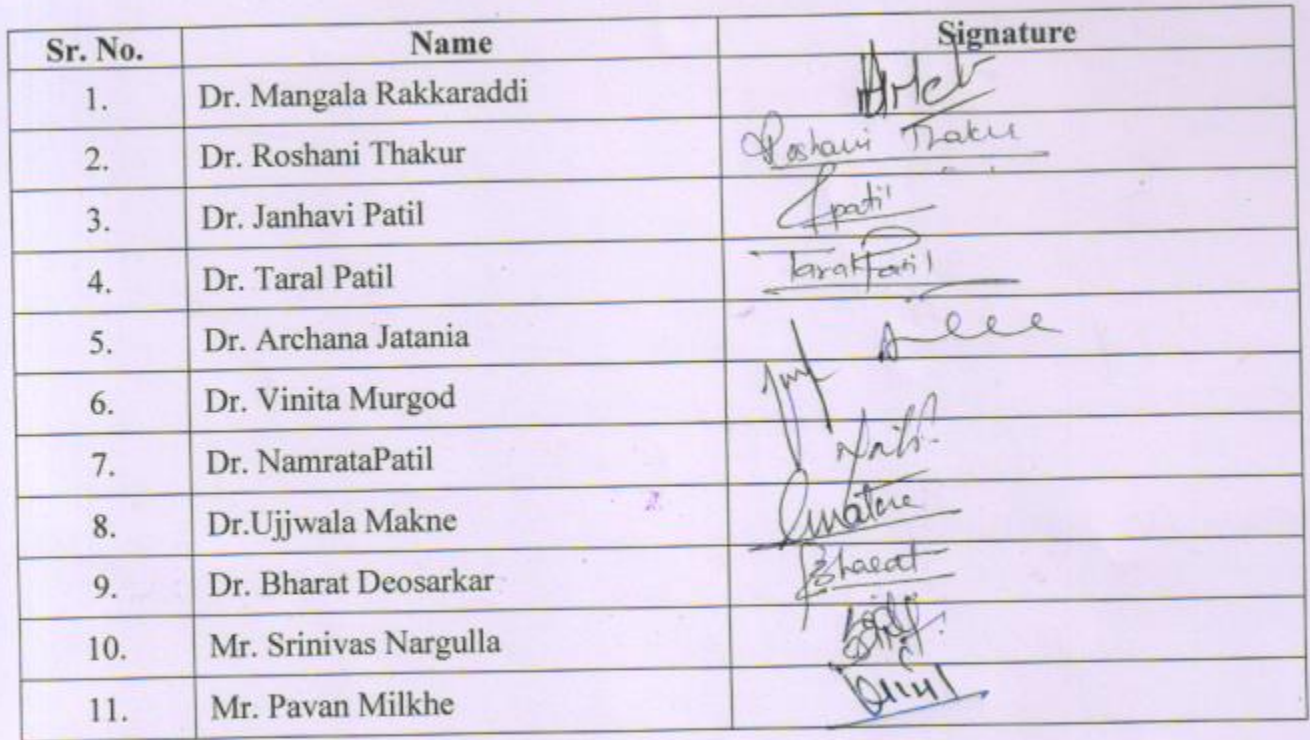 Sr. No. Name Signature
1. Dr. Mangala Rakkaraddi
2. Dr. Roshani Thakur Roshani Thakur
3. Dr. Janhavi Patil Jpatil
4. Dr. Taral Patil TaralPatil
5. Dr. Archana Jatania
6. Dr. Vinita Murgod
7. Dr. NamrataPatil
8. Dr.Ujjwala Makne
9. Dr. Bharat Deosarkar Bharat
10. Mr. Srinivas Nargulla
11. Mr. Pavan Milkhe